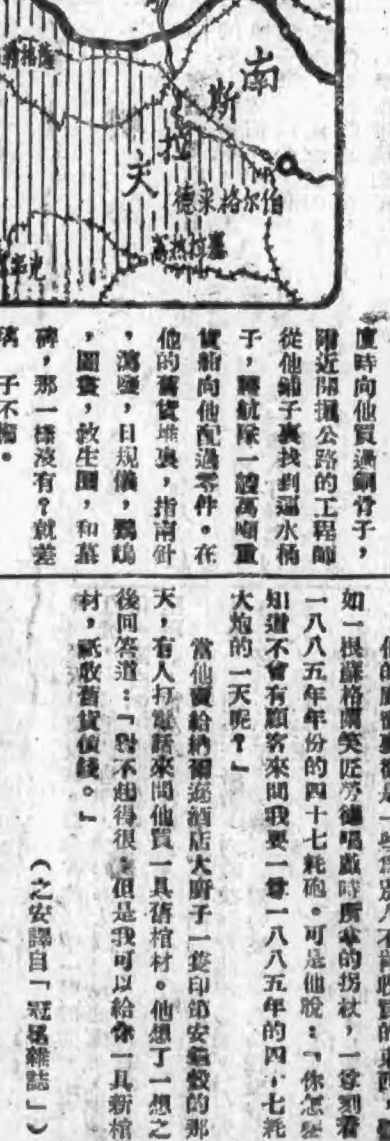 南
斯
拉
夫
伯尔格來德
度時向他買過鋼骨子，
附近開掘公路的工程師
從他鋪子裏找到逼水桶
子，護航隊一艘萬噸重
貨船向他配過零件。在
他的舊貨堆裏，指南針
，濕鹽，日規儀，鸚鵡
，圖畫，救生圈，和墓
碑，那一樣沒有？就差
子不備。
如一根蘇格蘭笑匠勞德唱戲時所拿的拐杖，一尊刻着
一八八五年年份的四十七耗砲。可是他說：「你怎麽
知道不會有顧客來問我要一尊一八八五年的四十七耗
大炮的一天呢？」
當他賣給納爾遜酒店大廚子一隻印第安龜殼的那
天，有人打電話來問他買一具舊棺材。他想了一想之
後回答道：「對不起得很，但是我可以給你一具新棺
材，祇收舊貨價錢。」
（之安譯自「冠冕雜誌」）